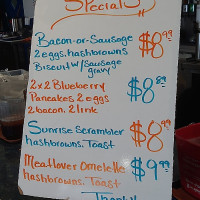 Specials
Bacon-or-Sausage $8.99
2 eggs. hashbrowns
Biscuit w/ Sausage
gravy
2x2 Blueberry $8.99
Pancakes 2 eggs
2 bacon. 2 link
Sunrise Scrambler $8.99
hashbrowns. Toast
Meatlover Omelette $9.99
hashbrowns. Toast